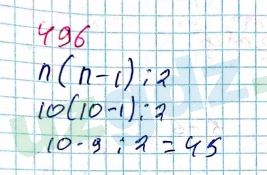 496
n(n-1):2
10(10-1):2
10·9:2=45